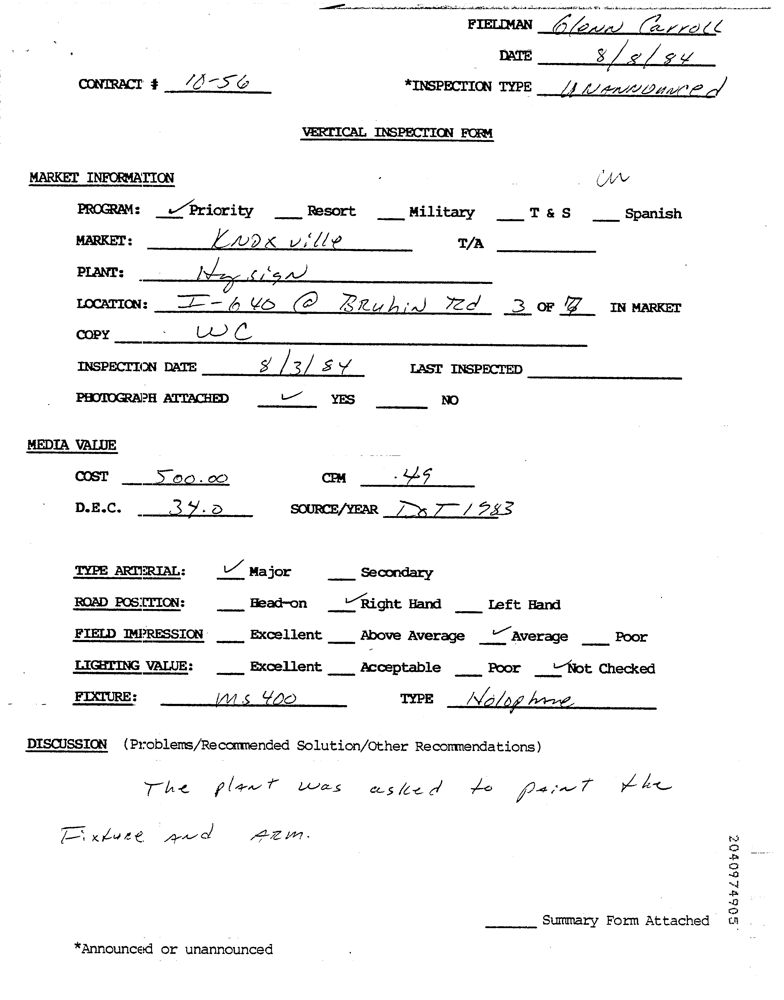 FIELDMAN Glenn Carroll
DATE 8/8/84
CONTRACT # 10-56 *INSPECTION TYPE UNANNOUNCED
VERTICAL INSPECTION FORM
MARKET INFORMATION
PROGRAM: ✓ Priority ___ Resort ___ Military ___ T & S ___ Spanish
MARKET: Knoxville T/A ___
PLANT: Hy sign
LOCATION: I-640 @ Bruhin Rd 3 OF IN MARKET
COPY WC
INSPECTION DATE 8/3/84 LAST INSPECTED ___
PHOTOGRAPH ATTACHED ✓ YES ___ NO
MEDIA VALUE
COST 500.00 CPM .49
D.E.C. 34.0 SOURCE/YEAR DOT 1983
TYPE ARTERIAL: ✓ Major ___ Secondary
ROAD POSITION: ___ Head-on ✓ Right Hand ___ Left Hand
FIELD IMPRESSION ___ Excellent ___ Above Average ✓ Average ___ Poor
LIGHTING VALUE: ___ Excellent ___ Acceptable ___ Poor ✓ Not Checked
FIXTURE: MS 400 TYPE Holophine
DISCUSSION (Problems/Recommended Solution/Other Recommendations)
The plant was asked to paint the
Fixture and Arm.
2040974905
___ Summary Form Attached
*Announced or unannounced